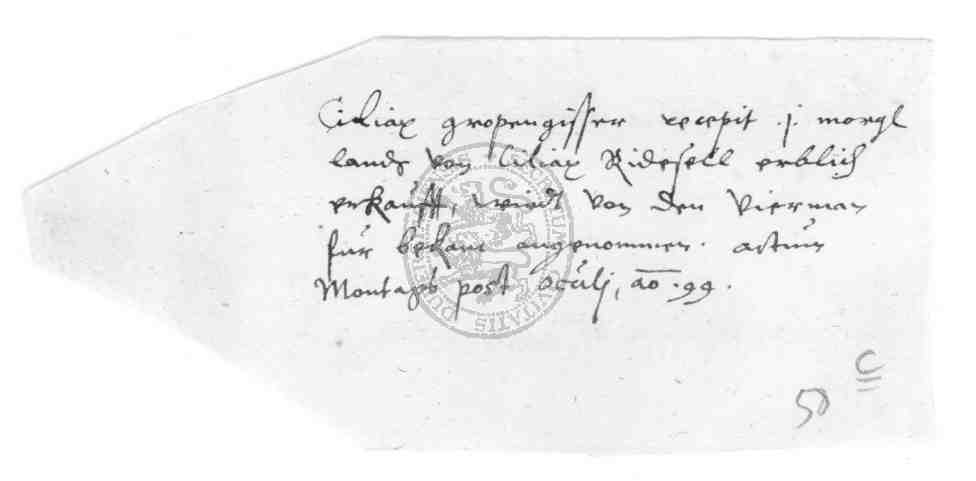 Ciliax gropengisser recepit .j. morgl
lands von Ciliax Ridesell erblich
erkaufft, wirdt von den Vierman
für bekant angenommen. actum
Montags post Oculj, ao .99.
C
50